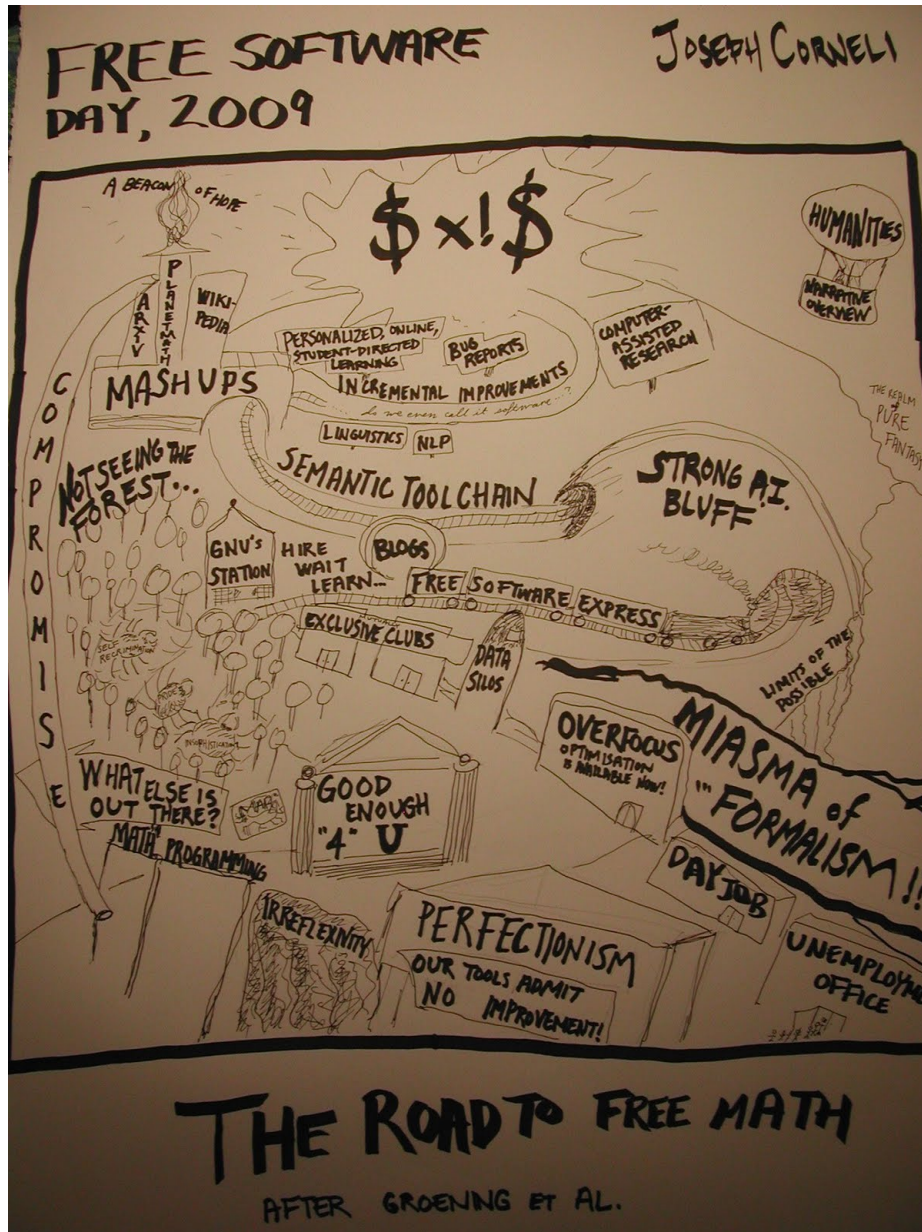 FREE SOFTWARE
DAY, 2009
JOSEPH CORNELI
A BEACON OF HOPE
$ x! $
HUMANITIES
NARRATIVE
OVERVIEW
ARXIV
PLANETMATH
WIKI-
PEDIA
MASHUPS
PERSONALIZED, ONLINE,
STUDENT-DIRECTED
LEARNING
BUG
REPORTS
INCREMENTAL IMPROVEMENTS
do we even call it software...?
COMPUTER-
ASSISTED
RESEARCH
THE REALM
of
PURE
FANTASY
COMPROMISE
LINGUISTICS
NLP
NOT SEEING THE
FOREST...
SEMANTIC TOOLCHAIN
STRONG A.I.
BLUFF
GNU'S
STATION
HIRE
WAIT
LEARN...
BLOGS
FREE SOFTWARE EXPRESS
EXCLUSIVE CLUBS
DATA
SILOS
SELF
RECRIMINATION
PRIDE
LIMITS OF THE
POSSIBLE
OVERFOCUS
OPTIMISATION
IS AVAILABLE NOW!
MIASMA of
"FORMALISM!!
WHAT ELSE IS
OUT THERE?
MAP
GOOD
ENOUGH
"4" U
"MATH" PROGRAMMING
DAY JOB
IRREFLEXIVITY
PERFECTIONISM
OUR TOOLS ADMIT
NO IMPROVEMENT!
UNEMPLOYM
OFFICE
THE ROAD TO FREE MATH
AFTER GROENING ET AL.